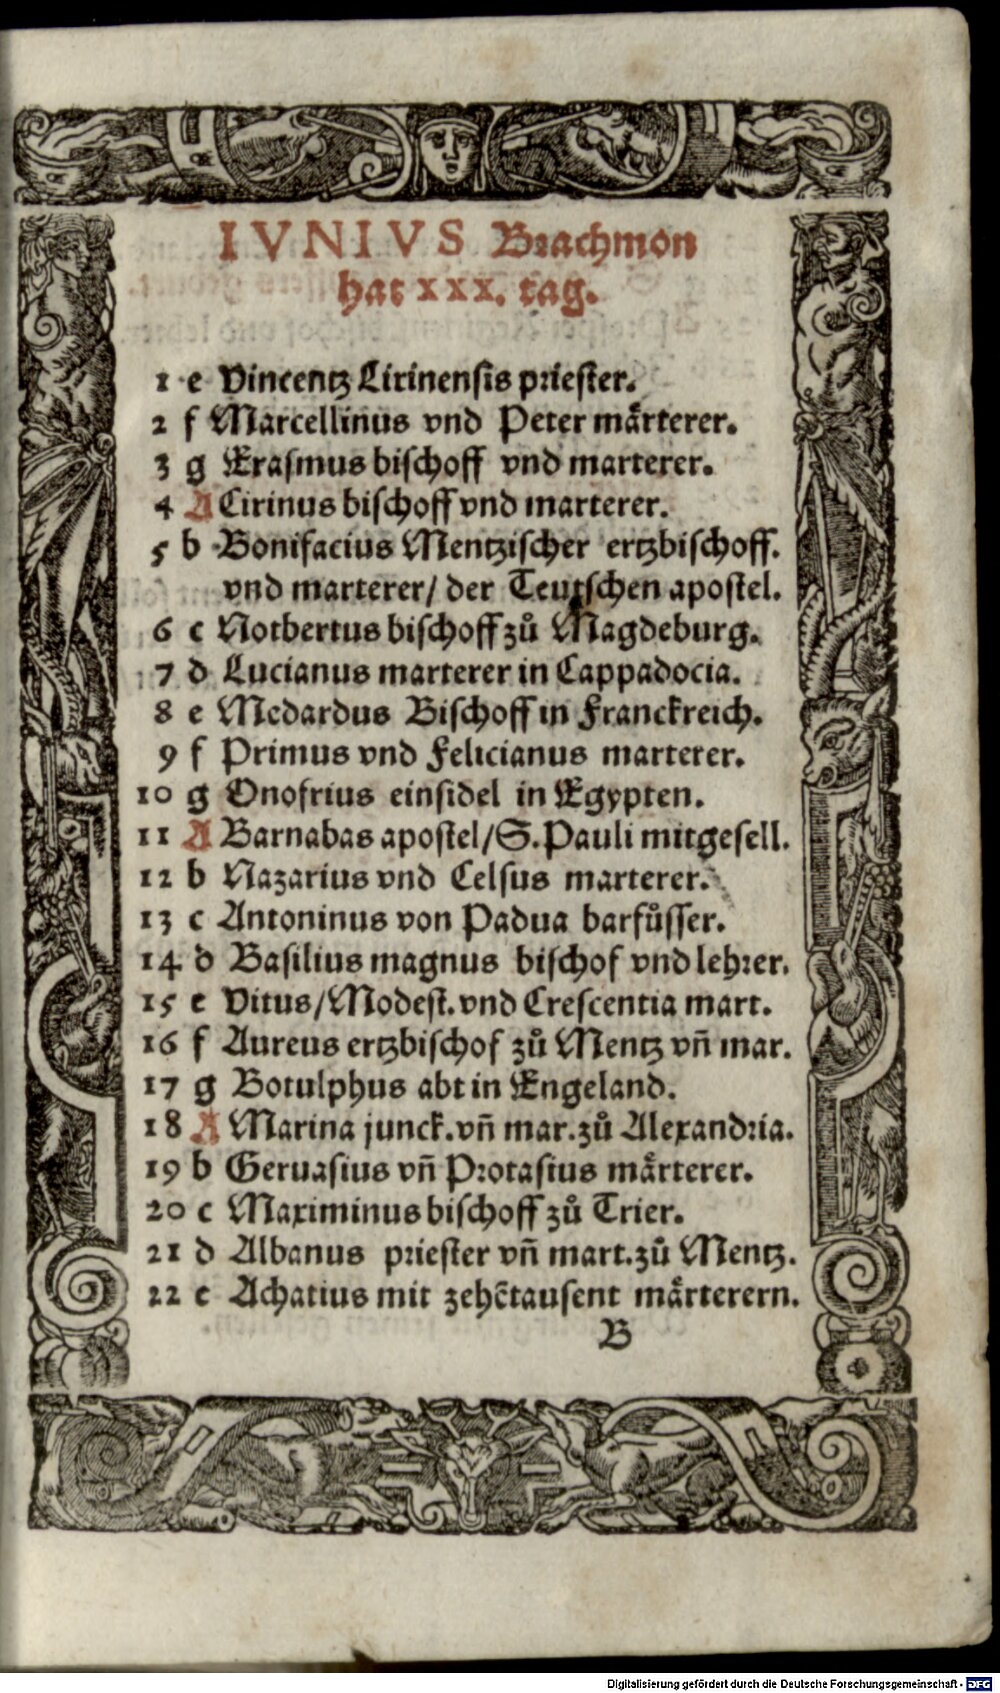 IVNIVS Brachmon
hat xxx. tag.
1 e Vincentz Lirinensis priester.
2 f Marcellinus vnd Peter mårterer.
3 g Erasmus bischoff vnd marterer.
4 A Cirinus bischoff vnd marterer.
5 b Bonifacius Mentzischer ertzbischoff.
vnd marterer/ der Teutschen apostel.
6 c Notbertus bischoff zů Magdeburg.
7 d Lucianus marterer in Cappadocia.
8 e Medardus Bischoff in Franckreich.
9 f Primus vnd Felicianus marterer.
10 g Onofrius einsidel in Egypten.
11 A Barnabas apostel/S. Pauli mitgesell.
12 b Nazarius vnd Celsus marterer.
13 c Antoninus von Padua barfůsser.
14 d Basilius magnus bischof vnd lehrer.
15 e Vitus/Modest. vnd Crescentia mart.
16 f Aureus ertzbischof zů Mentz vñ mar.
17 g Botulphus abt in Engeland.
18 A Marina junck. vñ mar. zů Alexandria.
19 b Geruasius vñ Protasius mårterer.
20 c Maximinus bischoff zů Trier.
21 d Albanus priester vñ mart. zů Mentz.
22 e Achatius mit zehẽtausent mårterern.
B
Digitalisierung gefördert durch die Deutsche Forschungsgemeinschaft - DFG